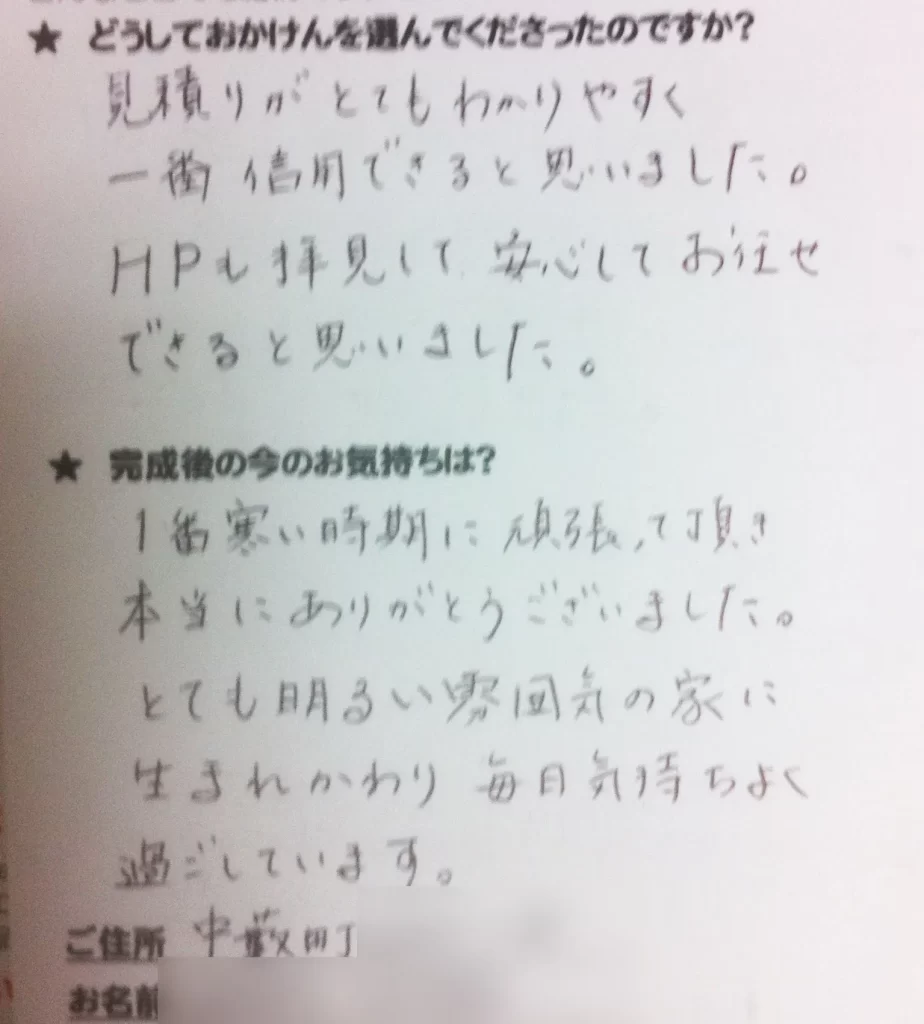 ★ どうしておかけんを選んでくださったのですか?
見積りがとてもわかりやすく
一番信用できると思いました。
HPも拝見して安心してお任せ
できると思いました。
★ 完成後の今のお気持ちは?
1番寒い時期に頑張って頂き
本当にありがとうございました。
とても明るい雰囲気の家に
生まれかわり毎日気持ちよく
過ごしています。
ご住所 中藪町
お名前